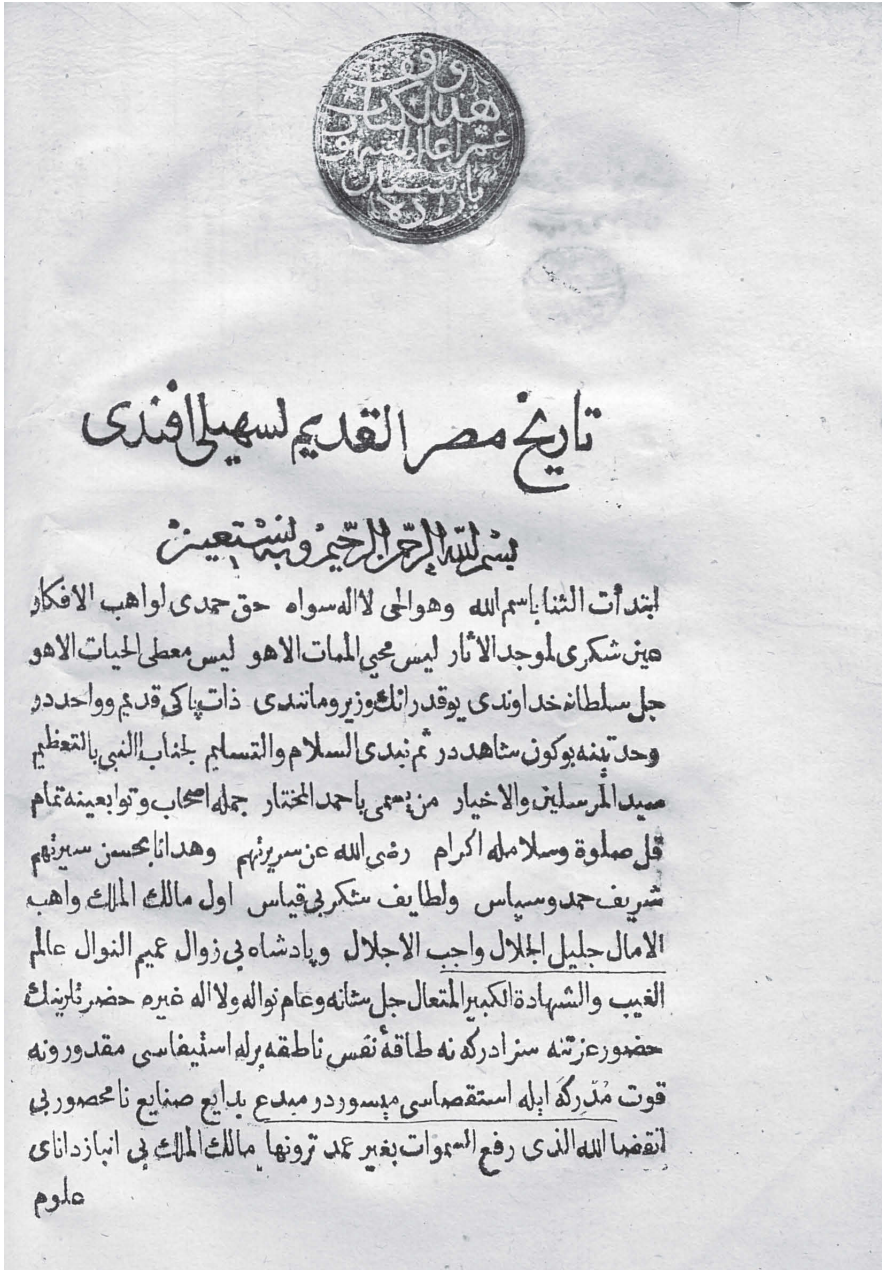 وقف
هذا الكتاب
تاريخ مصر القديم لسهيلى افندى
بسم الله الرحمن الرحيم وبه نستعين
ابتدأت الثنا باسم الله وهو الحى لا اله سواه حق حمدى لواهب الافكار
عين شكرى لموجد الاثار ليس محيي الممات الا هو ليس معطى الحيات الا هو
جل سلطانه خداوندى يوقدر انك وزير ومانندى ذات پاكى قديم وواحددر
وحدتينه بوكون شاهددر ثم نبدى السلام والتسليم لجناب النبي بالتعظيم
سيد المرسلين والاخيار من يسمى باحمد المختار جمله اصحاب وتوابعينه تمام
قل صلوة وسلامله اكرام رضى الله عن سريرتهم وهدانا بحسن سيرتهم
شريف حمد وسپاس ولطايف شكر بى قياس اول مالك الملك واهب
الامال جليل الجلال واجب الاجلال وپادشاه بى زوال عميم النوال عالم
الغيب والشهادة الكبير المتعال جل شانه وعام نواله ولا اله غيره حضرتلرينك
حضور عزتنه سزادركه نه طاقۀ نفس ناطقه برله استيفاسى مقدور ونه
قوت مُدْرِكَه ايله استقصاسى ميسوردر مبدع بدايع صنايع نامحصور بى
انقضا الله الذى رفع السموات بغير عمد ترونها مالك الملك بى انباز داناى
علوم